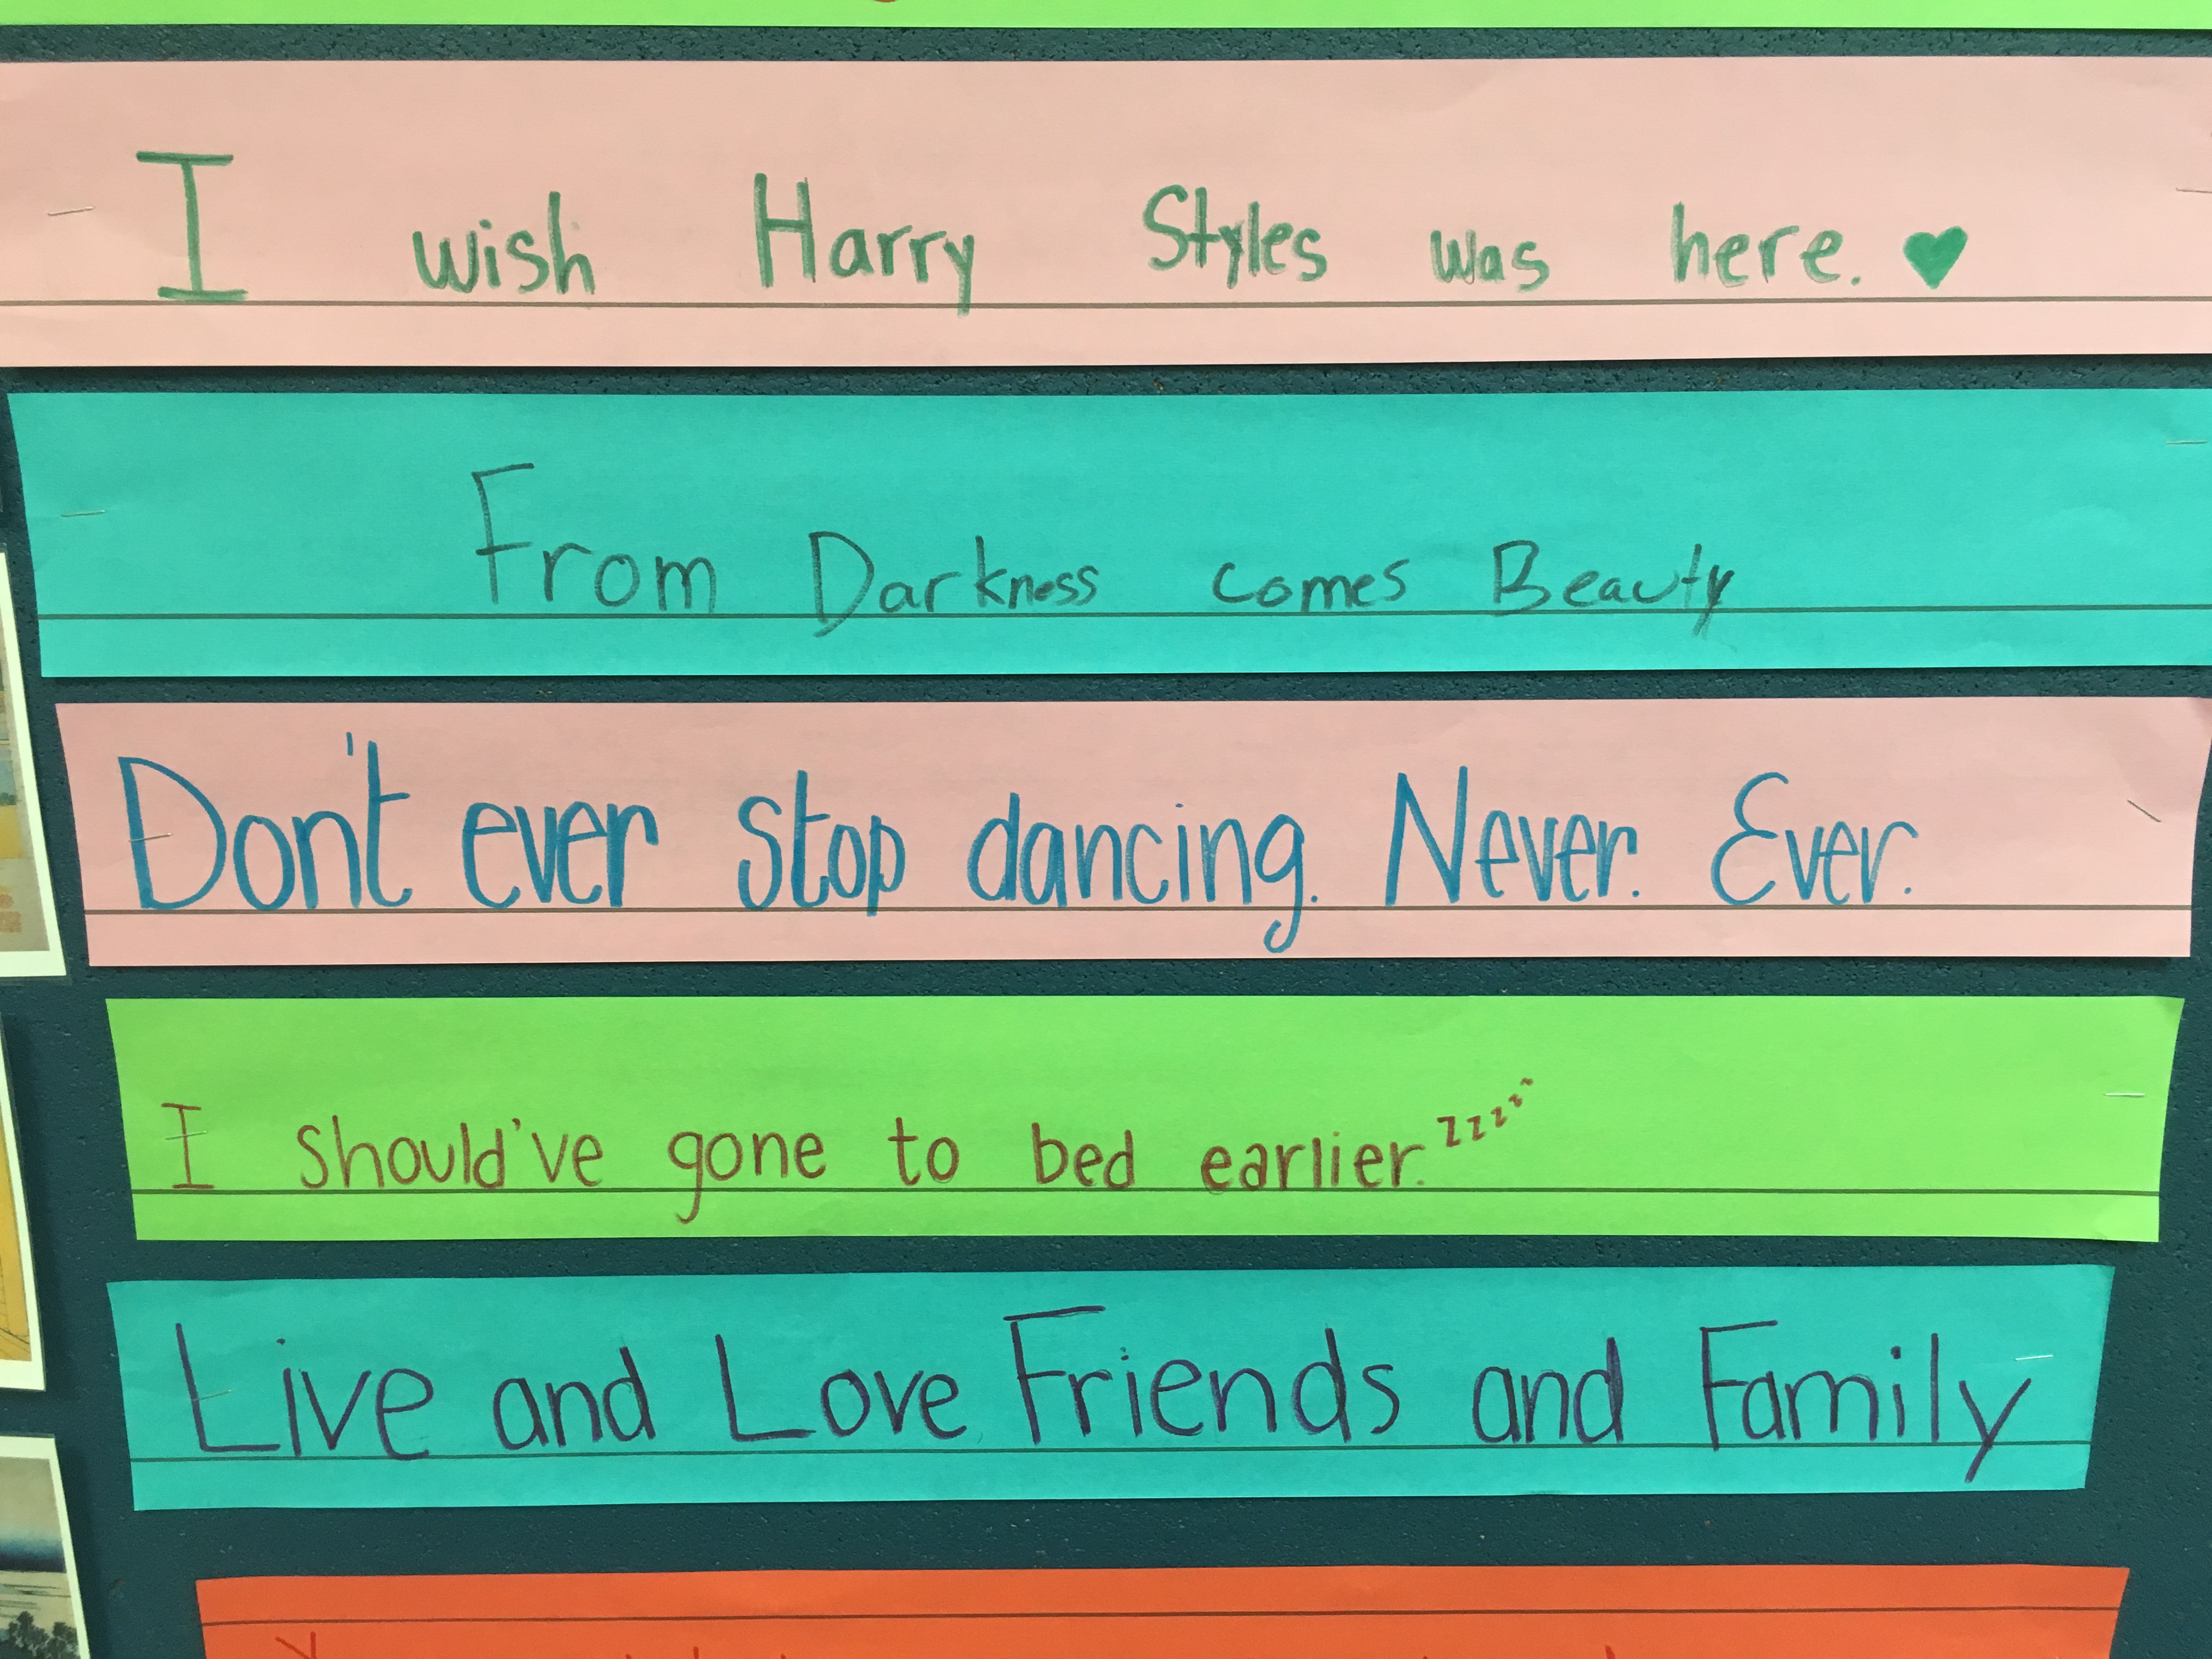 I wish Harry Styles was here. ♥
From Darkness comes Beauty
Don't ever stop dancing. Never. Ever.
I should've gone to bed earlier. zzzzzz
Live and Love Friends and Family